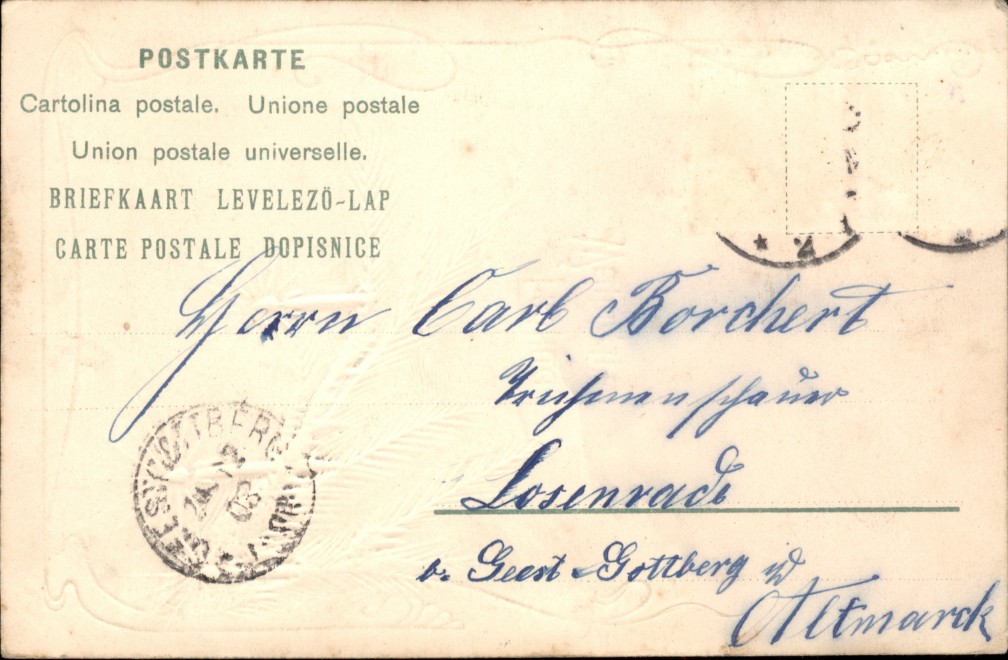 POSTKARTE
Cartolina postale. Unione postale
Union postale universelle.
BRIEFKAART LEVELEZÖ-LAP
CARTE POSTALE DOPISNICE
Herrn Carl Borchert
Trichinenschauer
Losenrade
b. Geest-Gottberg i/d
Altmarck